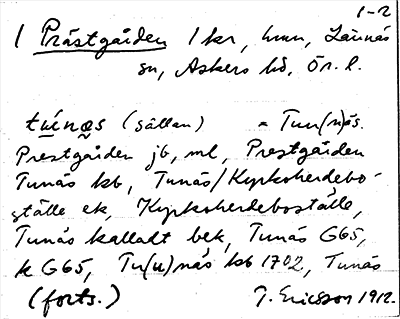 1-2
1 Prästgården 1 kr, hmn, Lännäs
sn, Askers hd, Ör. l.
tẁnąs (sällan) = Tun(n)ås.
Prestgården jb, ml, Prestgården
Tunås kb, Tunås/Kyrkoherdebo-
ställe ek, Kyrkoherdeboställe,
Tunås kalladt bek, Tunås G65,
k G65, Tu(n)nås kb 1702, Tunås
(forts.) J. Ericsson 1912.